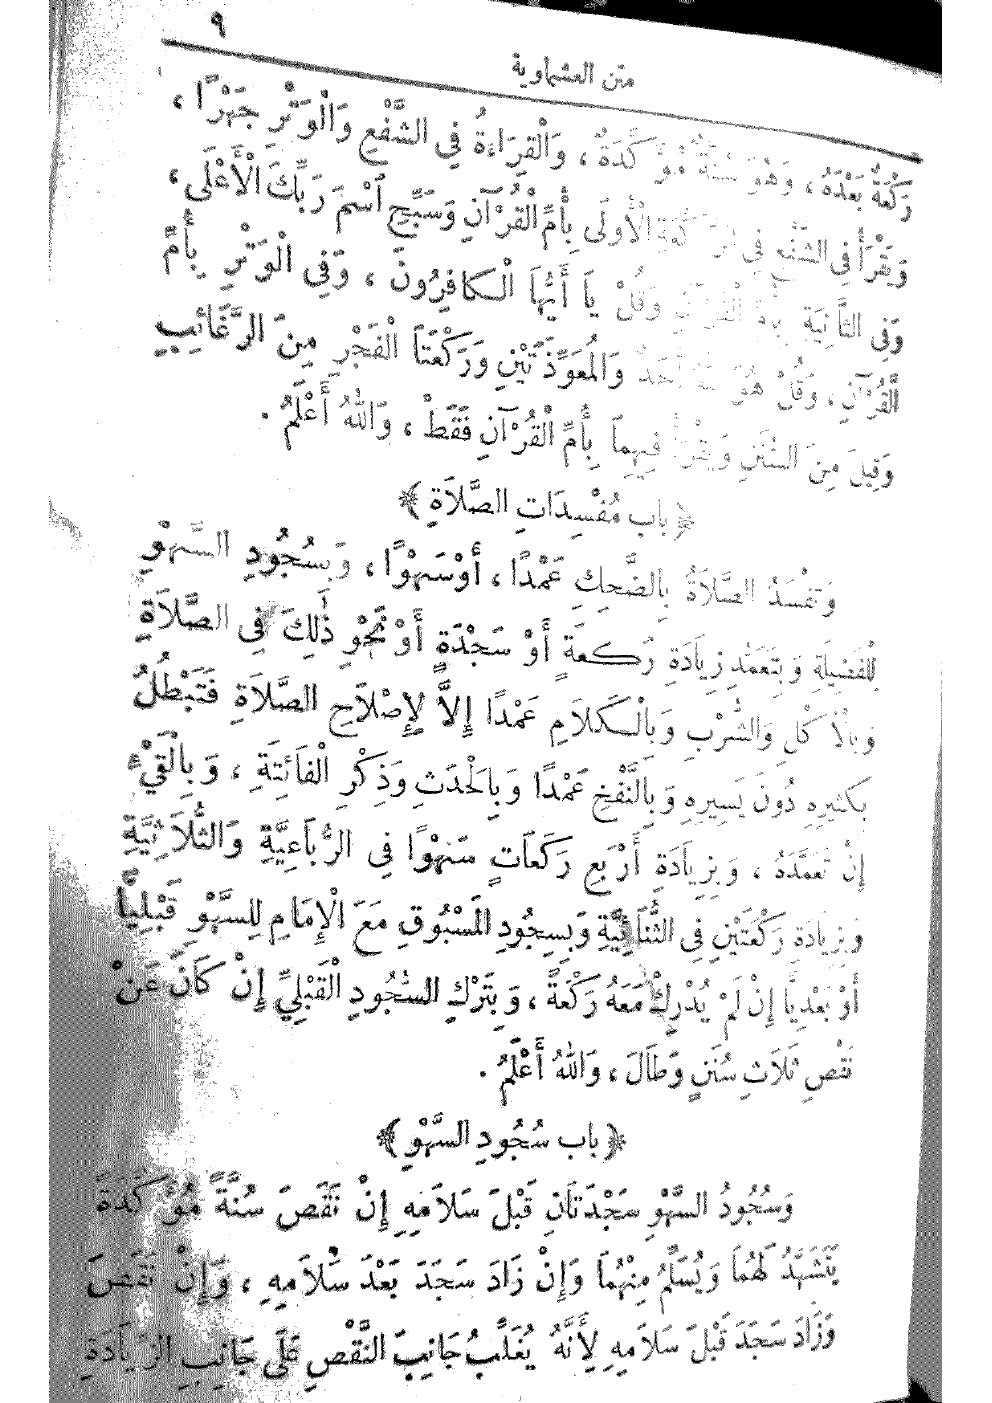 ٩
متن العشماوية
رَكْعَةٌ بَعْدَهُ ، وَهُوَ سُنَّةٌ مُؤَكَّدَةٌ ، وَالْقِرَاءةُ فِي الشَّفْعِ وَالْوَتْرِ جَهْرًا ،
وَيَقْرَأُ فِى الشَّفْعِ فِى الرَّكْعَةِ الْأُولَى بِأُمِّ الْقُرْآنِ وَسَبِّحِ اسْمَ رَبِّكَ الْأَعْلَى ،
وَفِى الثَّانِيَةِ بِأُمِّ الْقُرْآنِ وَقُلْ يَا أَيُّهَا الْكَافِرُونَ ، وَفِى الْوَتْرِ بِأُمِّ
الْقُرْآنِ ، وَقُلْ هُوَ اللهُ أَحَدٌ وَالْمُعَوِّذَتَيْنِ وَرَكْعَتَا الْفَجْرِ مِنَ الرَّغَائِبِ
وَقِيلَ مِنَ السُّنَنِ وَيَقْرَأُ فِيهِمَا بِأُمِّ الْقُرْآنِ فَقَطْ ، وَاللهُ أَعْلَمُ .
﴿ باب مُفْسِدَاتِ الصَّلَاةِ ﴾
وَتَفْسُدُ الصَّلَاةُ بِالضَّحِكِ عَمْدًا ، أَوْ سَهْوًا ، وَبِسُجُودِ السَّهْوِ
لِلْفَضِيلَةِ وَبِتَعَمُّدِ زِيَادَةِ رَكعَةٍ أَوْ سَجْدَةٍ أَوْ نَحْوِ ذٰلِكَ فِى الصَّلَاةِ
وَبِالْأَكْلِ وَالشُّرْبِ وَبِالْكَلَامِ عَمْدًا إِلاَّ لِإِصْلَاحِ الصَّلَاةِ فَتَبْطُلُ
بِكَثِيرِهِ دُونَ يَسِيرِهِ وَبِالنَّفْخِ عَمْدًا وَبِالْحَدَثِ وَذِكْرِ الْفَائِتَةِ ، وَبِالْقَيْءِ
إِنْ تَعَمَّدَهُ ، وَبِزِيَادَةِ أَرْبَعِ رَكَعَاتٍ سَهْوًا فِى الرُّبَاعِيَّةِ وَالثُّلَاثِيَّةِ
وَبِزِيَادَةِ رَكْعَتَيْنِ فِى الثُّنَائِيَّةِ وَبِسِجُودِ الْمَسْبُوقِ مَعَ الْإِمَامِ لِلسَّهْوِ قَبْلِيًّا
أَوْ بَعْدِيًّا إِنْ لَمْ يُدْرِكْ مَعَهُ رَكْعَةً ، وَبِتَرْكِ السُّجُودِ الْقَبْلِيِّ إِنْ كَانَ عَنْ
نَقْصِ ثَلَاثِ سُنَنٍ وَطَالَ ، وَاللهُ أَعْلَمُ .
﴿ باب سُجُودِ السَّهْوِ ﴾
وَسُجُودُ السَّهْوِ سَجْدَتَانِ قَبْلَ سَلَامِهِ إِنْ نَقَصَ سُنَّةً مُؤَكَّدَةً
يَتَشَهَّدُ لَهُمَا وَيُسَلِّمُ مِنْهُمَا وَإِنْ زَادَ سَجَدَ بَعْدَ سَلَامِهِ ، وَإِنْ نَقَصَ
وَزَادَ سَجَدَ قَبْلَ سَلَامِهِ لِأَنَّهُ يُغَلَّبُ جَانِبَ النَّقْصِ عَلَى جَانِبِ الزِّيَادَةِ